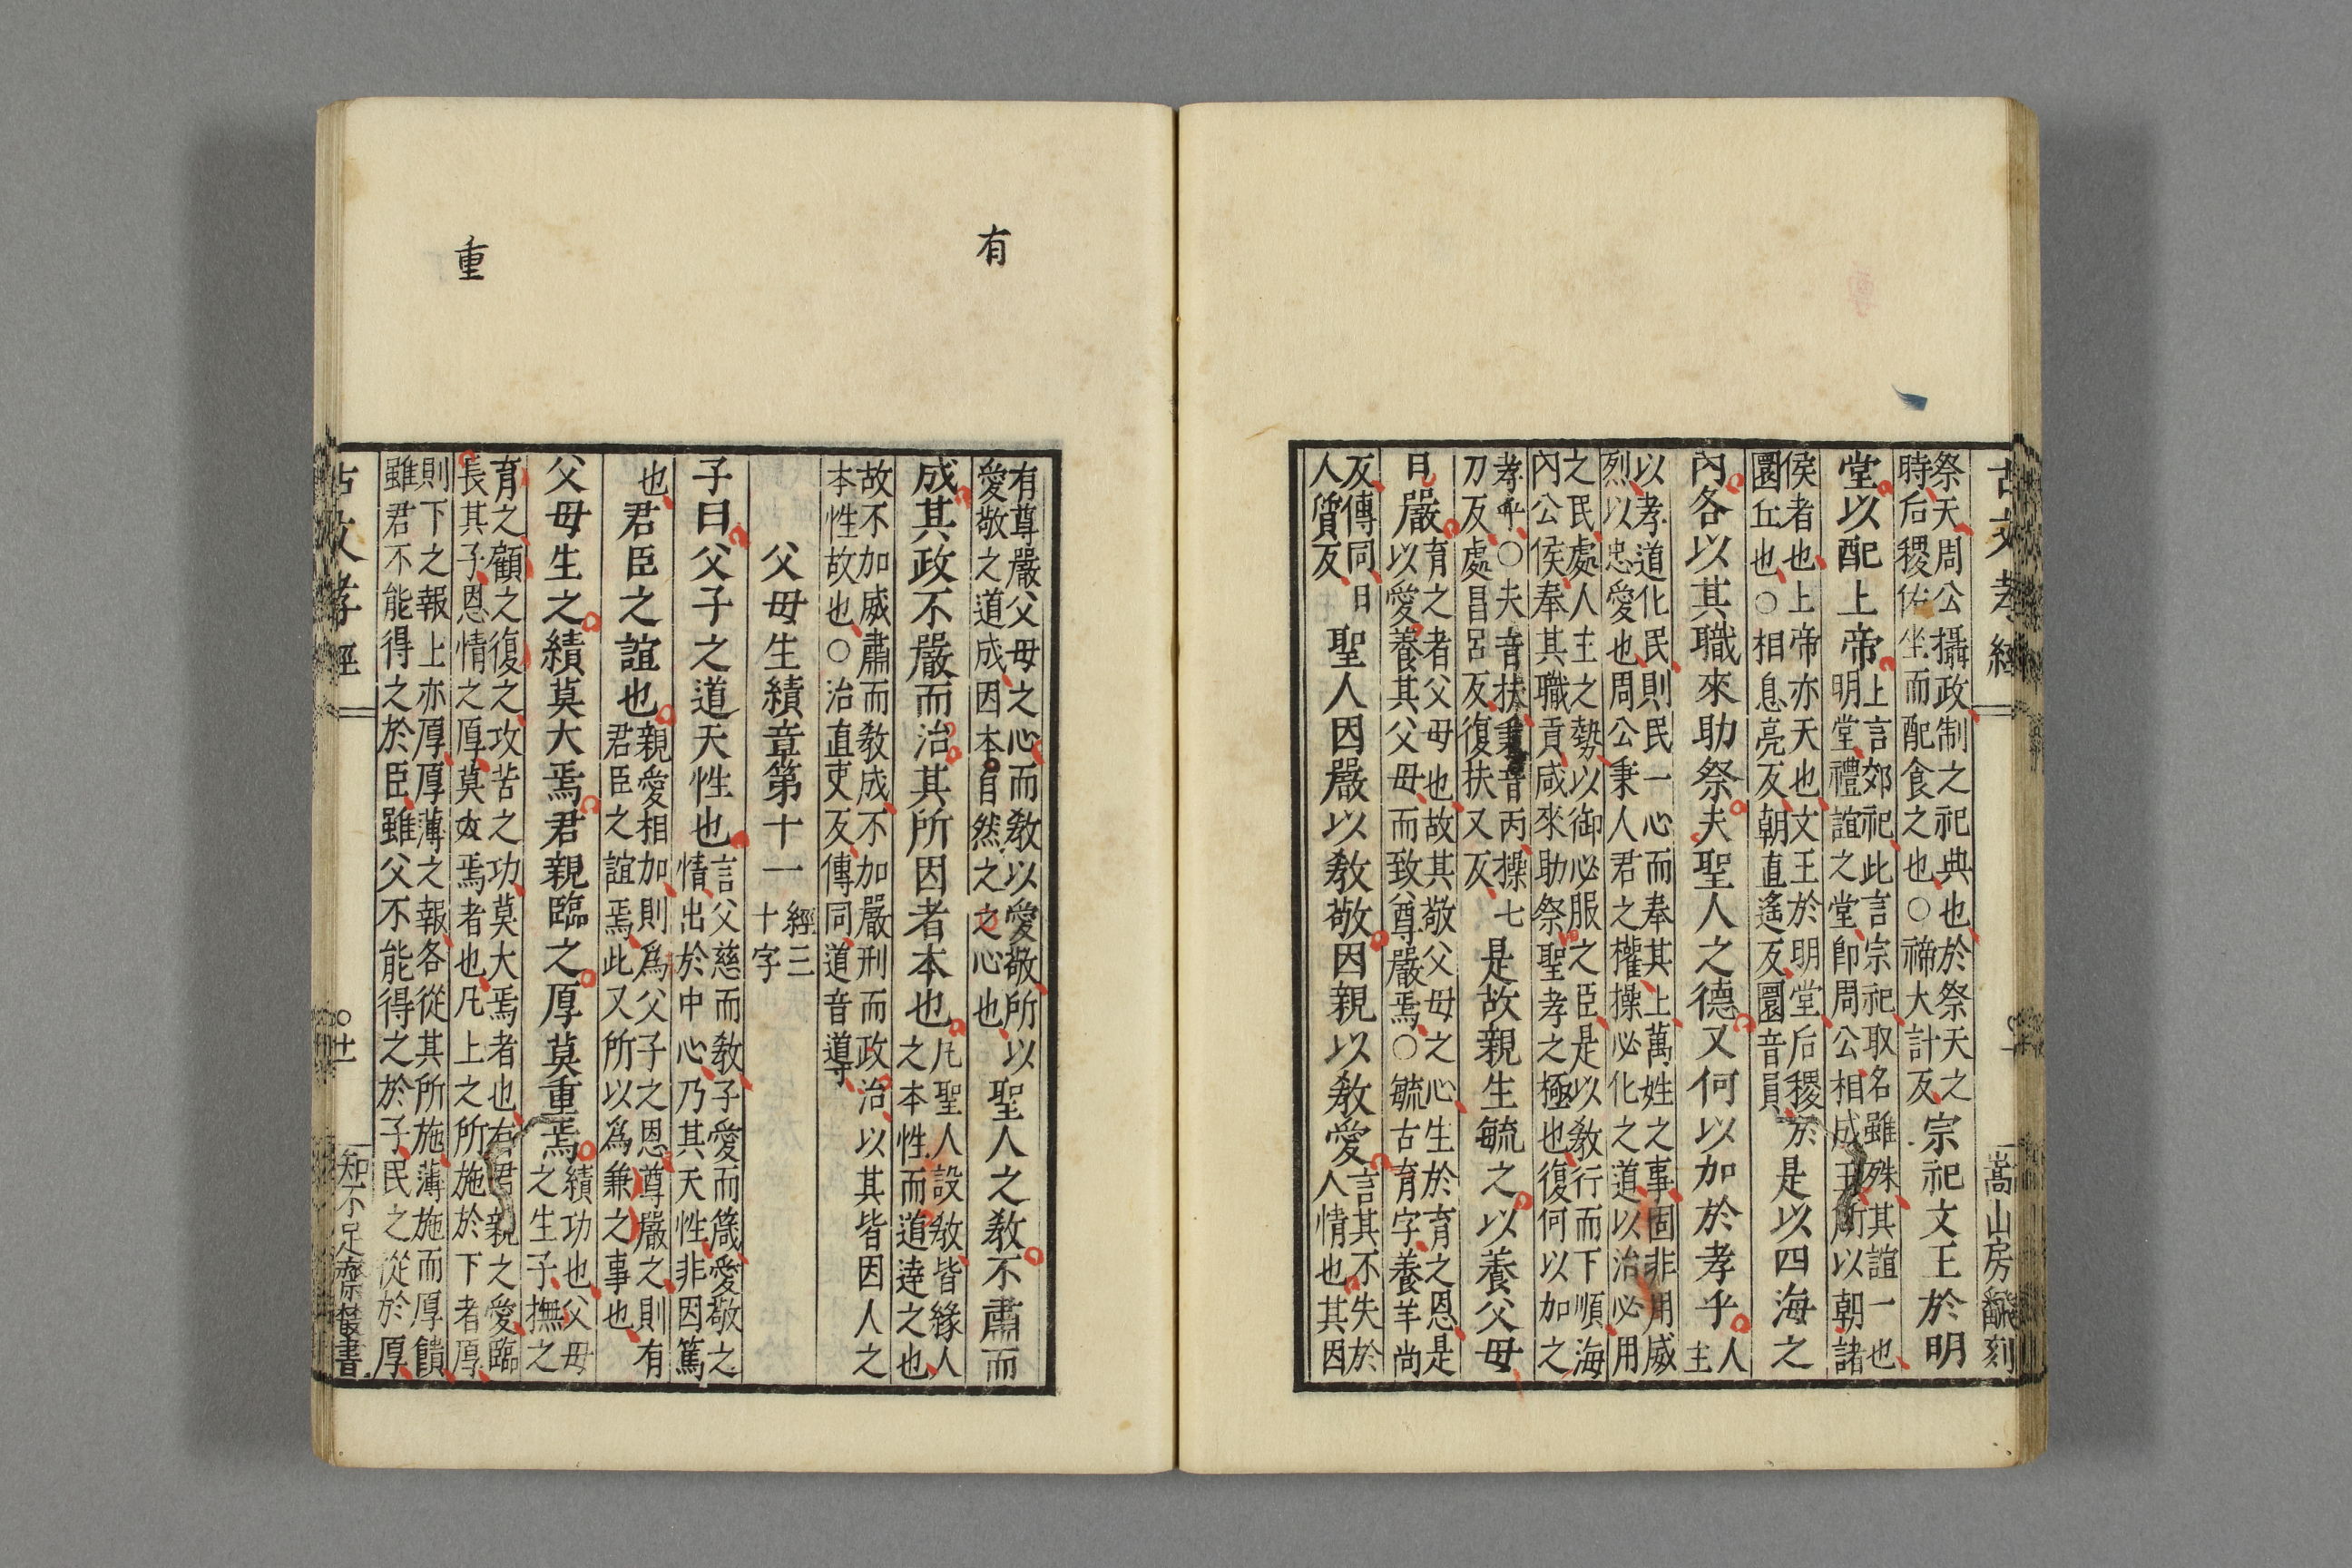 古文孝經
嵩山房飜刻
祭天周公攝政制之祀典也於祭天之
時后稷佑坐而配食之也○禘大計反
宗祀文王於明
堂以配上帝
上言郊祀此言宗祀取名雖殊其誼一也
明堂禮誼之堂卽周公相成王所以朝諸
侯者也上帝亦天也文王於明堂后稷於
圜丘也○相息亮反朝直遙反圜音員
是以四海之
內各以其職來助祭夫聖人之德又何以加於孝乎
人
主
以孝道化民則民一心而奉其上萬姓之事固非用威
烈以忠愛也周公秉人君之權操必化之道以治必用
之民處人主之勢以御必服之臣是以敎行而下順海
內公侯奉其職貢咸來助祭聖孝之極也復何以加之
孝乎○夫音扶秉音丙操七
刀反處昌呂反復扶又反
是故親生毓之以養父母
日嚴
育之者父母也故其敬父母之心生於育之恩是
以愛養其父母而致尊嚴焉○毓古育字養羊尚
反傳同日
人質反
聖人因嚴以敎敬因親以敎愛
言其不失於
人情也其因
有
重
有尊嚴父母之心而敎以愛敬所以
愛敬之道成因本自然之之心也
聖人之敎不肅而
成其政不嚴而治其所因者本也
凡聖人設敎皆緣人
之本性而道達之也
故不加威肅而敎成不加嚴刑而政治以其皆因人之
本性故也○治直吏反傳同道音導
父母生績章第十一
經三
十字
子曰父子之道天性也
言父慈而敎子愛而箴愛敬之
情出於中心乃其天性非因篤
也
君臣之誼也
親愛相加則爲父子之恩尊嚴之則有
君臣之誼焉此又所以爲兼之事也
父母生之績莫大焉君親臨之厚莫重焉
績功也父母
之生子撫之
育之顧之復之攻苦之功莫大焉者也有君親之愛臨
長其子恩情之厚莫大焉者也凡上之所施於下者厚
則下之報上亦厚厚薄之報各從其所施薄施而厚饋
雖君不能得之於臣雖父不能得之於子民之從於厚
古文孝經
○廿一
知不足齋叢書